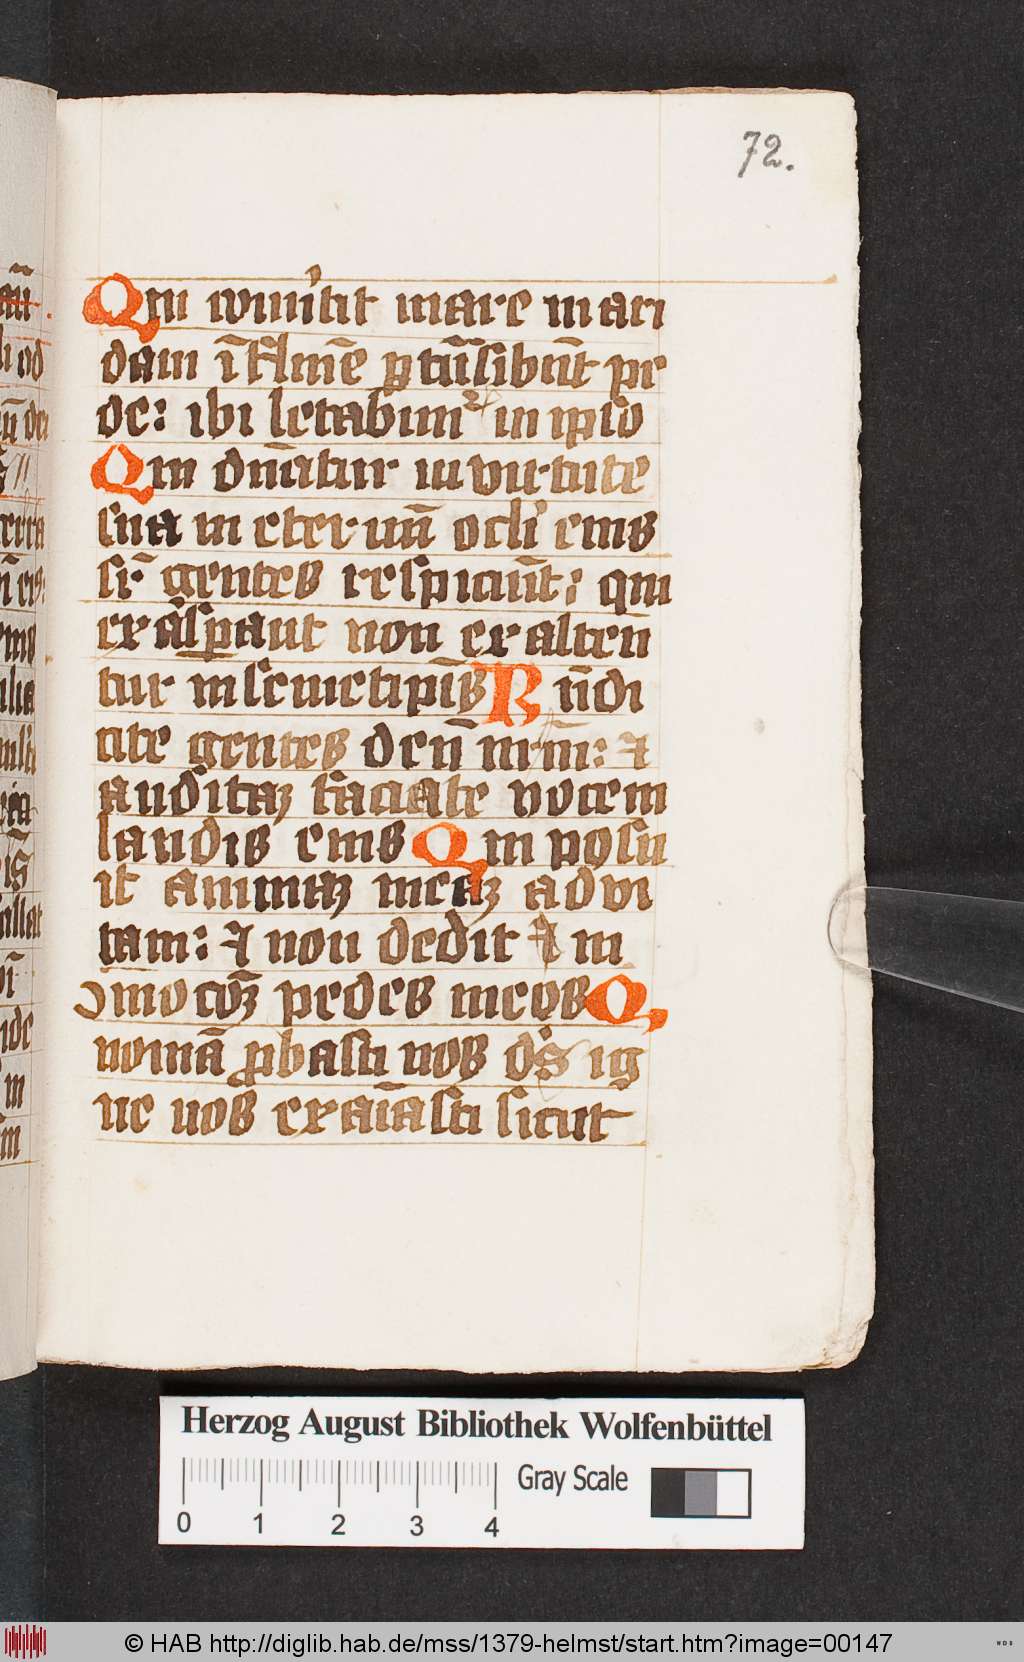 72.
Qui ꝯuu'tit mare in ari
dam ī flūīe ꝑtūsibūt pe
de: ibi letabim᷒ in ipīo
Qui dn̄atur in virtute
sua in eternū ocli' eius
sr̄ gentes respiciūt: qui
exasꝑant non exalten̄
tur in semetipīs Bn̄di
cite gentes deū nr̄m: ⁊
auditaꝫ faciate vocem
laudis eius Qui posu
it animaꝫ meaꝫ ad vi
tam: ⁊ non dedit ī
ꝯmotōꝫ pedes meos Q
noniā ꝓbasti nos ds ig
ne nos exaīasti sicut
Herzog August Bibliothek Wolfenbüttel
Gray Scale
0 1 2 3 4
© HAB http://diglib.hab.de/mss/1379-helmst/start.htm?image=00147